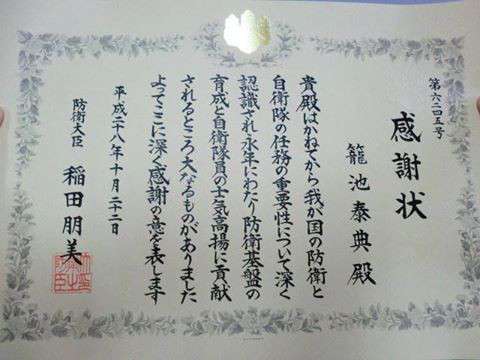 第六二四五号
感謝状
籠池泰典殿
貴殿はかねてから我が国の防衛と
自衛隊の任務の重要性について深く
認識され永年にわたり防衛基盤の
育成と自衛隊員の士気高揚に貢献
されるところ大なるものがありました
よってここに深く感謝の意を表します
平成二十八年十月二十二日
防衛大臣 稲田朋美